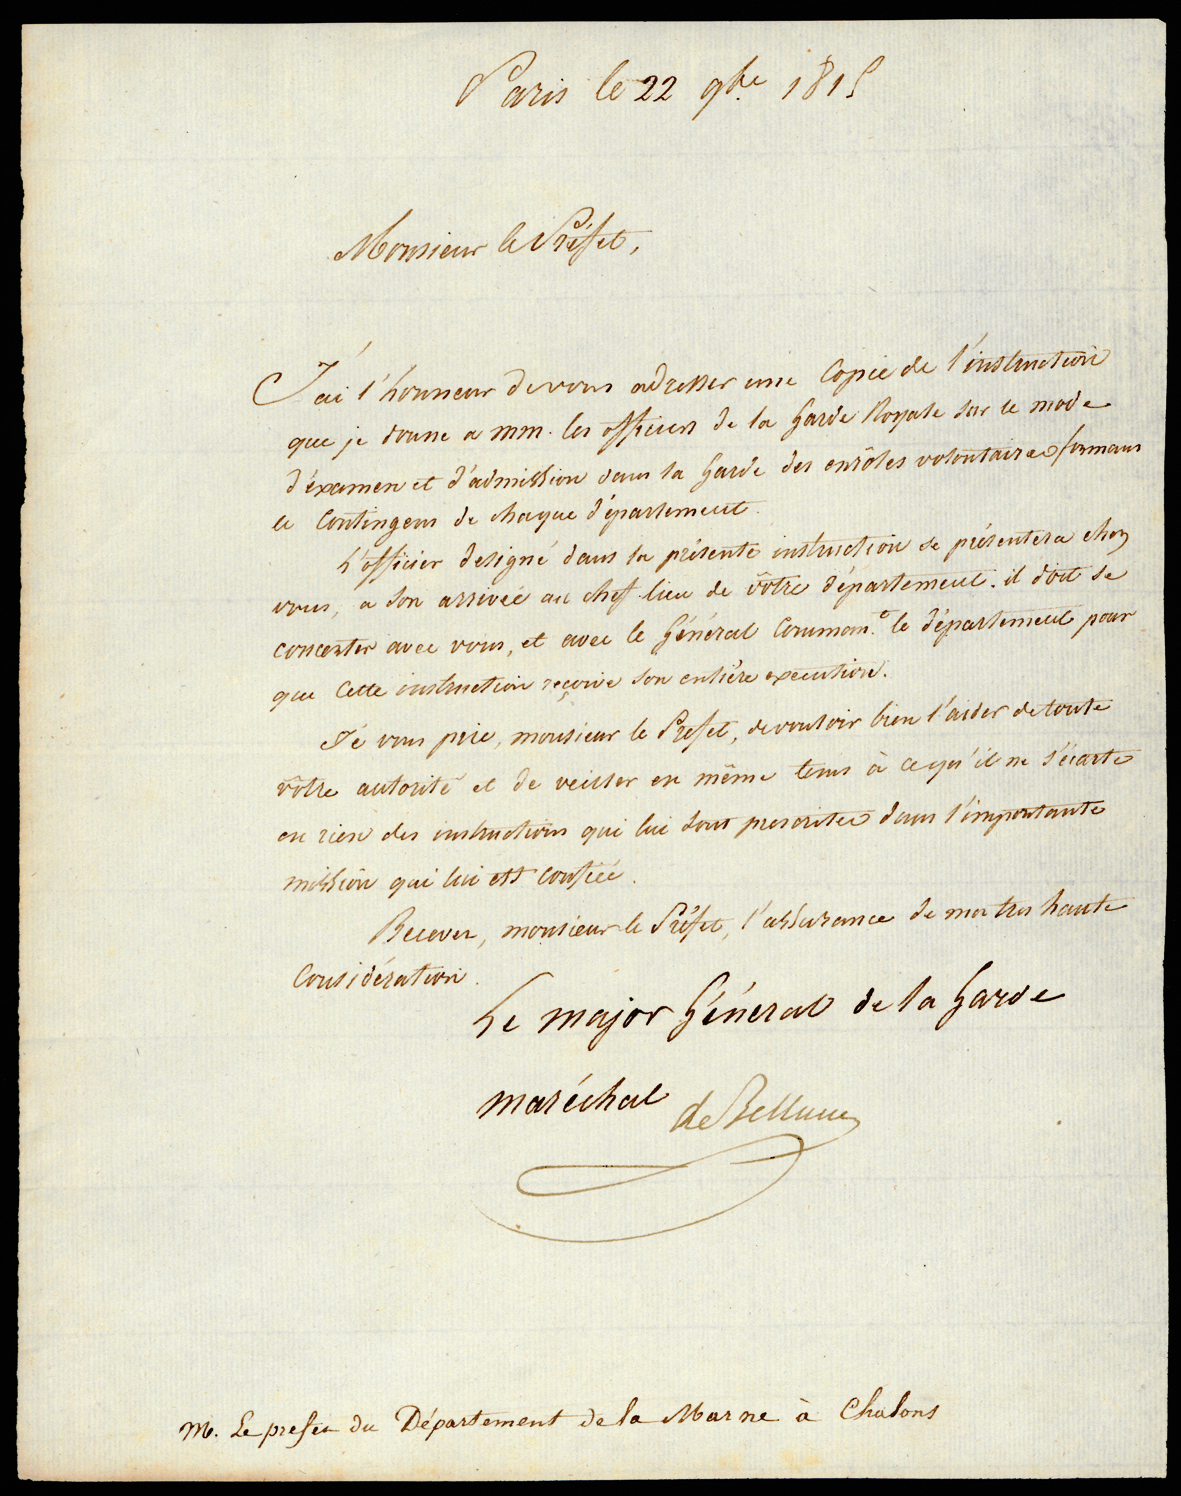 Paris le 22 9bre 1815
Monsieur le Préfet,
J'ai l'honneur de vous adresser une Copie de l'instruction
que je donne a mm. les officiers de la Garde Royale sur le mode
d'éxamen et d'admission dans la Garde des enrôles volontaires formans
le Contingens de chaque département.
L'officier designé dans la présente instruction se présentera chez
vous, a son arrivée au chef lieu de vôtre département. il doit se
concerter avec vous, et avec le Général Comman.t le département pour
que Cette instruction reçoive son entière execution.
Je vous prie, monsieur le Prefet, de vouloir bien l'aider de toute
vôtre autorité et de veiller en même tems à ce qu'il ne s'écarte
en rien des instructions qui lui sont prescrites dans l'importante
mission qui lui est Confiée.
Recever, monsieur le Préfet, l'assurance de ma tres haute
Considération.
Le major Général de la Garde
maréchal de Bellune
M. Le prefet du Département de la Marne à Chalons